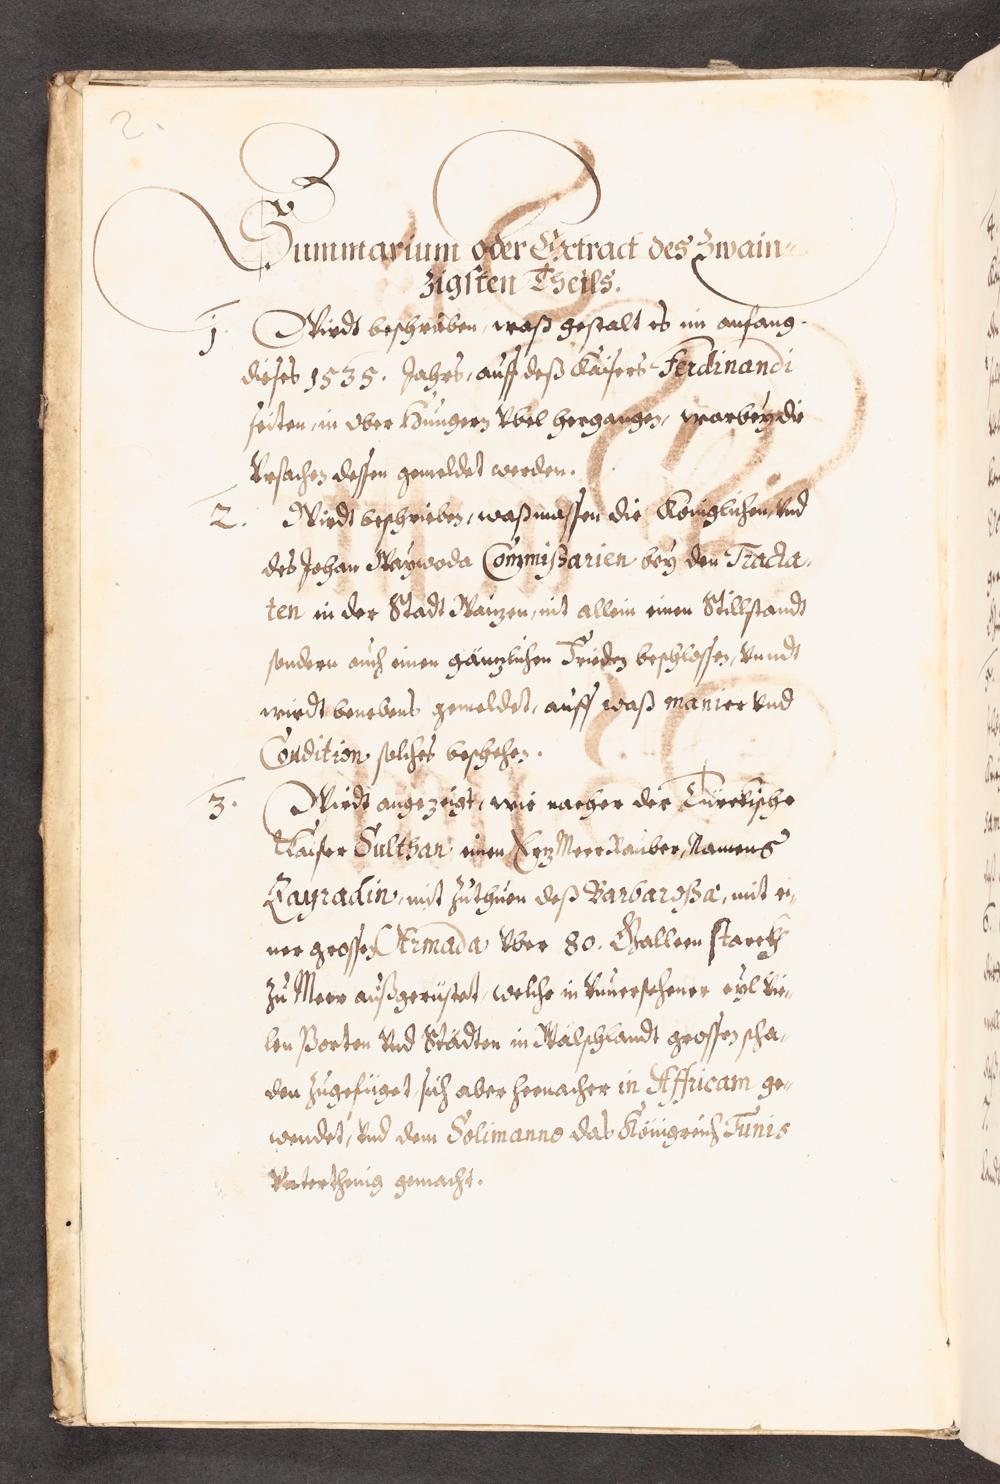 2.
Summarium oder Extract des Zwain-
zigsten Theils.
1. Wirdt beschrieben, waß gestalt es im anfang
dieses 1535. Jahrs, auff deß Kaisers Ferdinandi
seiten, in Ober Hungern Vbel hergangen, warbey die
Vrsachen dessen gemeldet werden.
2. Wirdt beschrieben, waßmassen die Königlichen, Vnd
des Johan Waywoda Commißarien bey den Tracta-
ten in der Stadt Waizen, nit allein einen Stillstandt
sondern auch einen gänzlichen Frieden beschlossen, Vnndt
wirdt benebens gemeldet, auff waß manier Vnd
Condition solches beschehen.
3. Wirdt angezeigt, wie nacher der Türckische
Kaiser Sulthan einen Erz Meer Rauber, Namens
Cayradin, mit Zuthuen deß Barbaroßa, mit ei-
ner grossen Armada Vber 80. Galleen starckh
Zu Meer außgerüstet, welche in Vnuersehener eyl Vie-
len Porten Vnd Städten in Wälschlandt grossen scha-
den Zugefüget, sich aber hernacher in Affricam ge-
wendet, Vnd dem Solimanno das Königreich Tunis
Vnterthenig gemacht.